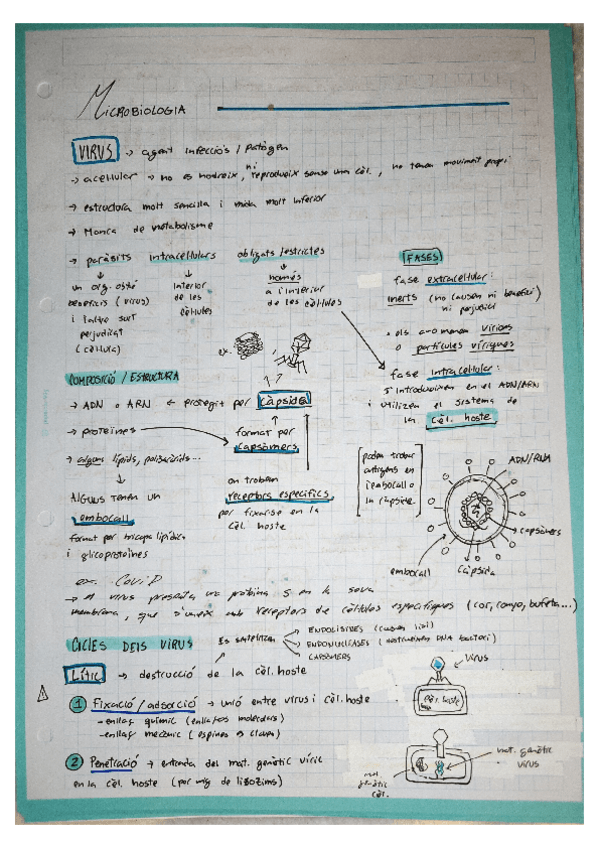 MICROBIOLOGIA
VIRUS → agent infecciós / patògen
→ acel·lular → no es nodreix, ni reprodueix sense una cèl., no tenen moviment propi
→ estructura molt sencilla i mida molt inferior
→ Manca de metabolisme
→ paràsits intracel·lulars obligats/estrictes
un org. obté
beneficis (virus)
i l'altre surt
perjudicat
(cèl·lula)
interior
de les
cèl·lules
només
a l'interior
de les cèl·lules
FASES
fase extracel·lular:
inerts (no causen ni benefici
ni perjudici
virions
o partícules víriques
fase intracel·lular:
s'introdueixen en el ADN/ARN
i utilitzen el sistema de
la cèl. hoste
ex.
COMPOSICIÓ / ESTRUCTURA
→ ADN o ARN ← protegit per Càpsida
→ proteïnes
format per
capsòmers
→ alguns lípids, polisacàrids...
ALGUNS TENEN UN
embocall
format per bicapa lipídica
i glicoproteïnes
on trobem
receptors específics
per fixarse en la
cèl. hoste
podem trobar
antígens en
l'embocall o
la càpsida.
ADN/RNA
capsòmers
Càpsida
embocall
ex. Covid
→ el virus presenta una proteïna S en la seva
membrana, que s'uneix amb receptors de cèl·lules específiques (cor, ronyo, bufeta...)
CICLES DELS VIRUS
Es sintetitzen
ENDOLISINES
ENDONUCLEASES (destrueixen DNA bacterià)
CAPSÒMERS
Lític → destrucció de la cèl. hoste
VIRUS
cèl. hoste
1 Fixació/adsorció → unió entre virus i cèl. hoste
- enllaç químic (enllaços moleculars)
- enllaç mecànic (espines o claus)
2 Penetració → entrada del mat. genètic víric
en la cèl. hoste (per mig de lisozims)
mat. genètic
virus
mat
genètic
cèl.